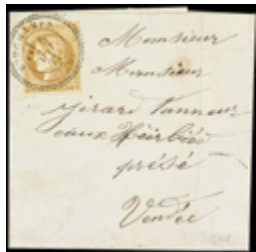 Monsieur
Monsieur
Girard Tanneur
aux Herbiers
présé
Vendée